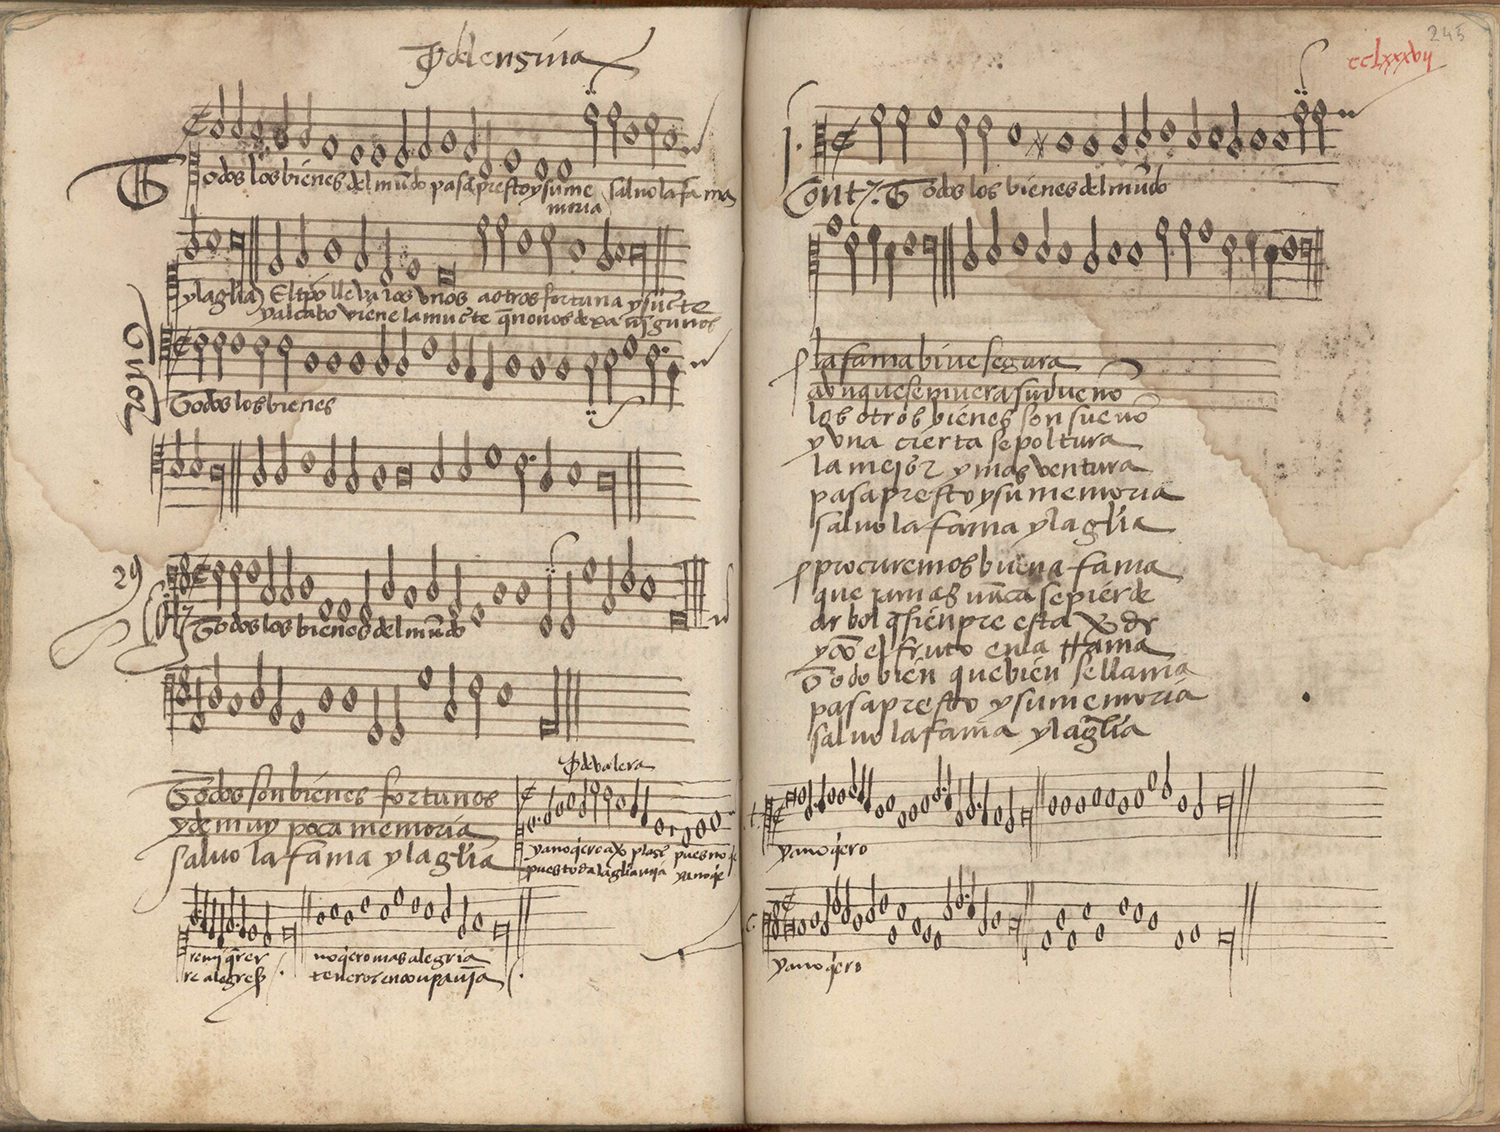 Jo del ensina
Todos los bienes del mūdo pasā presto y su me salvo la fama
moria
y la glīa) El tp̄o lleva los vnos a otros fortuna y suerte
y al cabo viene la muerte q̄ no nos dexa nīgunos
Tenor
Todos los bienes
29
Todos los bienes del mūdo
Todos son bienes fortunos
y de muy poca memoria
salvo la fama y la glīa
Jo de valera
ya no q̇ero aṽ plaser pues no
pues toda la glīa mja ya no q̇e
re mj q̄rer no q̇ero mas alegria
re alegreß
245
cclxxxvij
Cont. Todos los bienes del mūdo
la fama bive segura
avnque se muera su dueño
los otros bienes son sueño
y vna cierta sepoltura
la mejor y mas ventura
pasa presto y su memoria
salvo la fama y la glīa
procuremos buena fama
que jamas nūca se pierde
arbol q̄ sienpre esta v̄de
y cō el fruto en la rrama
Todo bien que bien se llama
pasa presto y su memoria
salvo la fama y la glīa
t.
ya no q̇ero
c.
ya no q̇ero